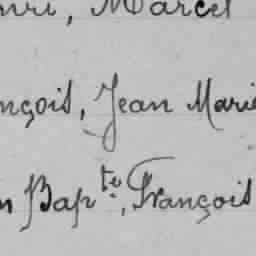 nri, Marcel
nçois, Jean Marie
n Bapte, François